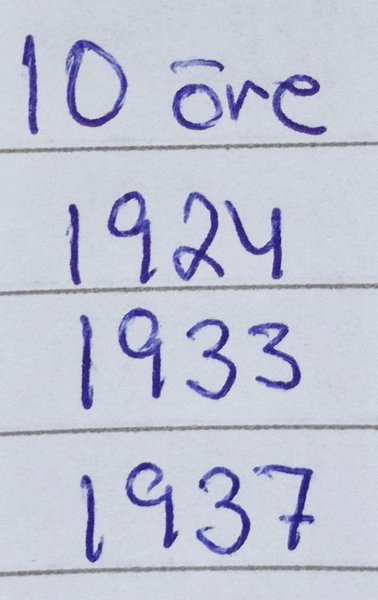 10 öre
1924
1933
1937